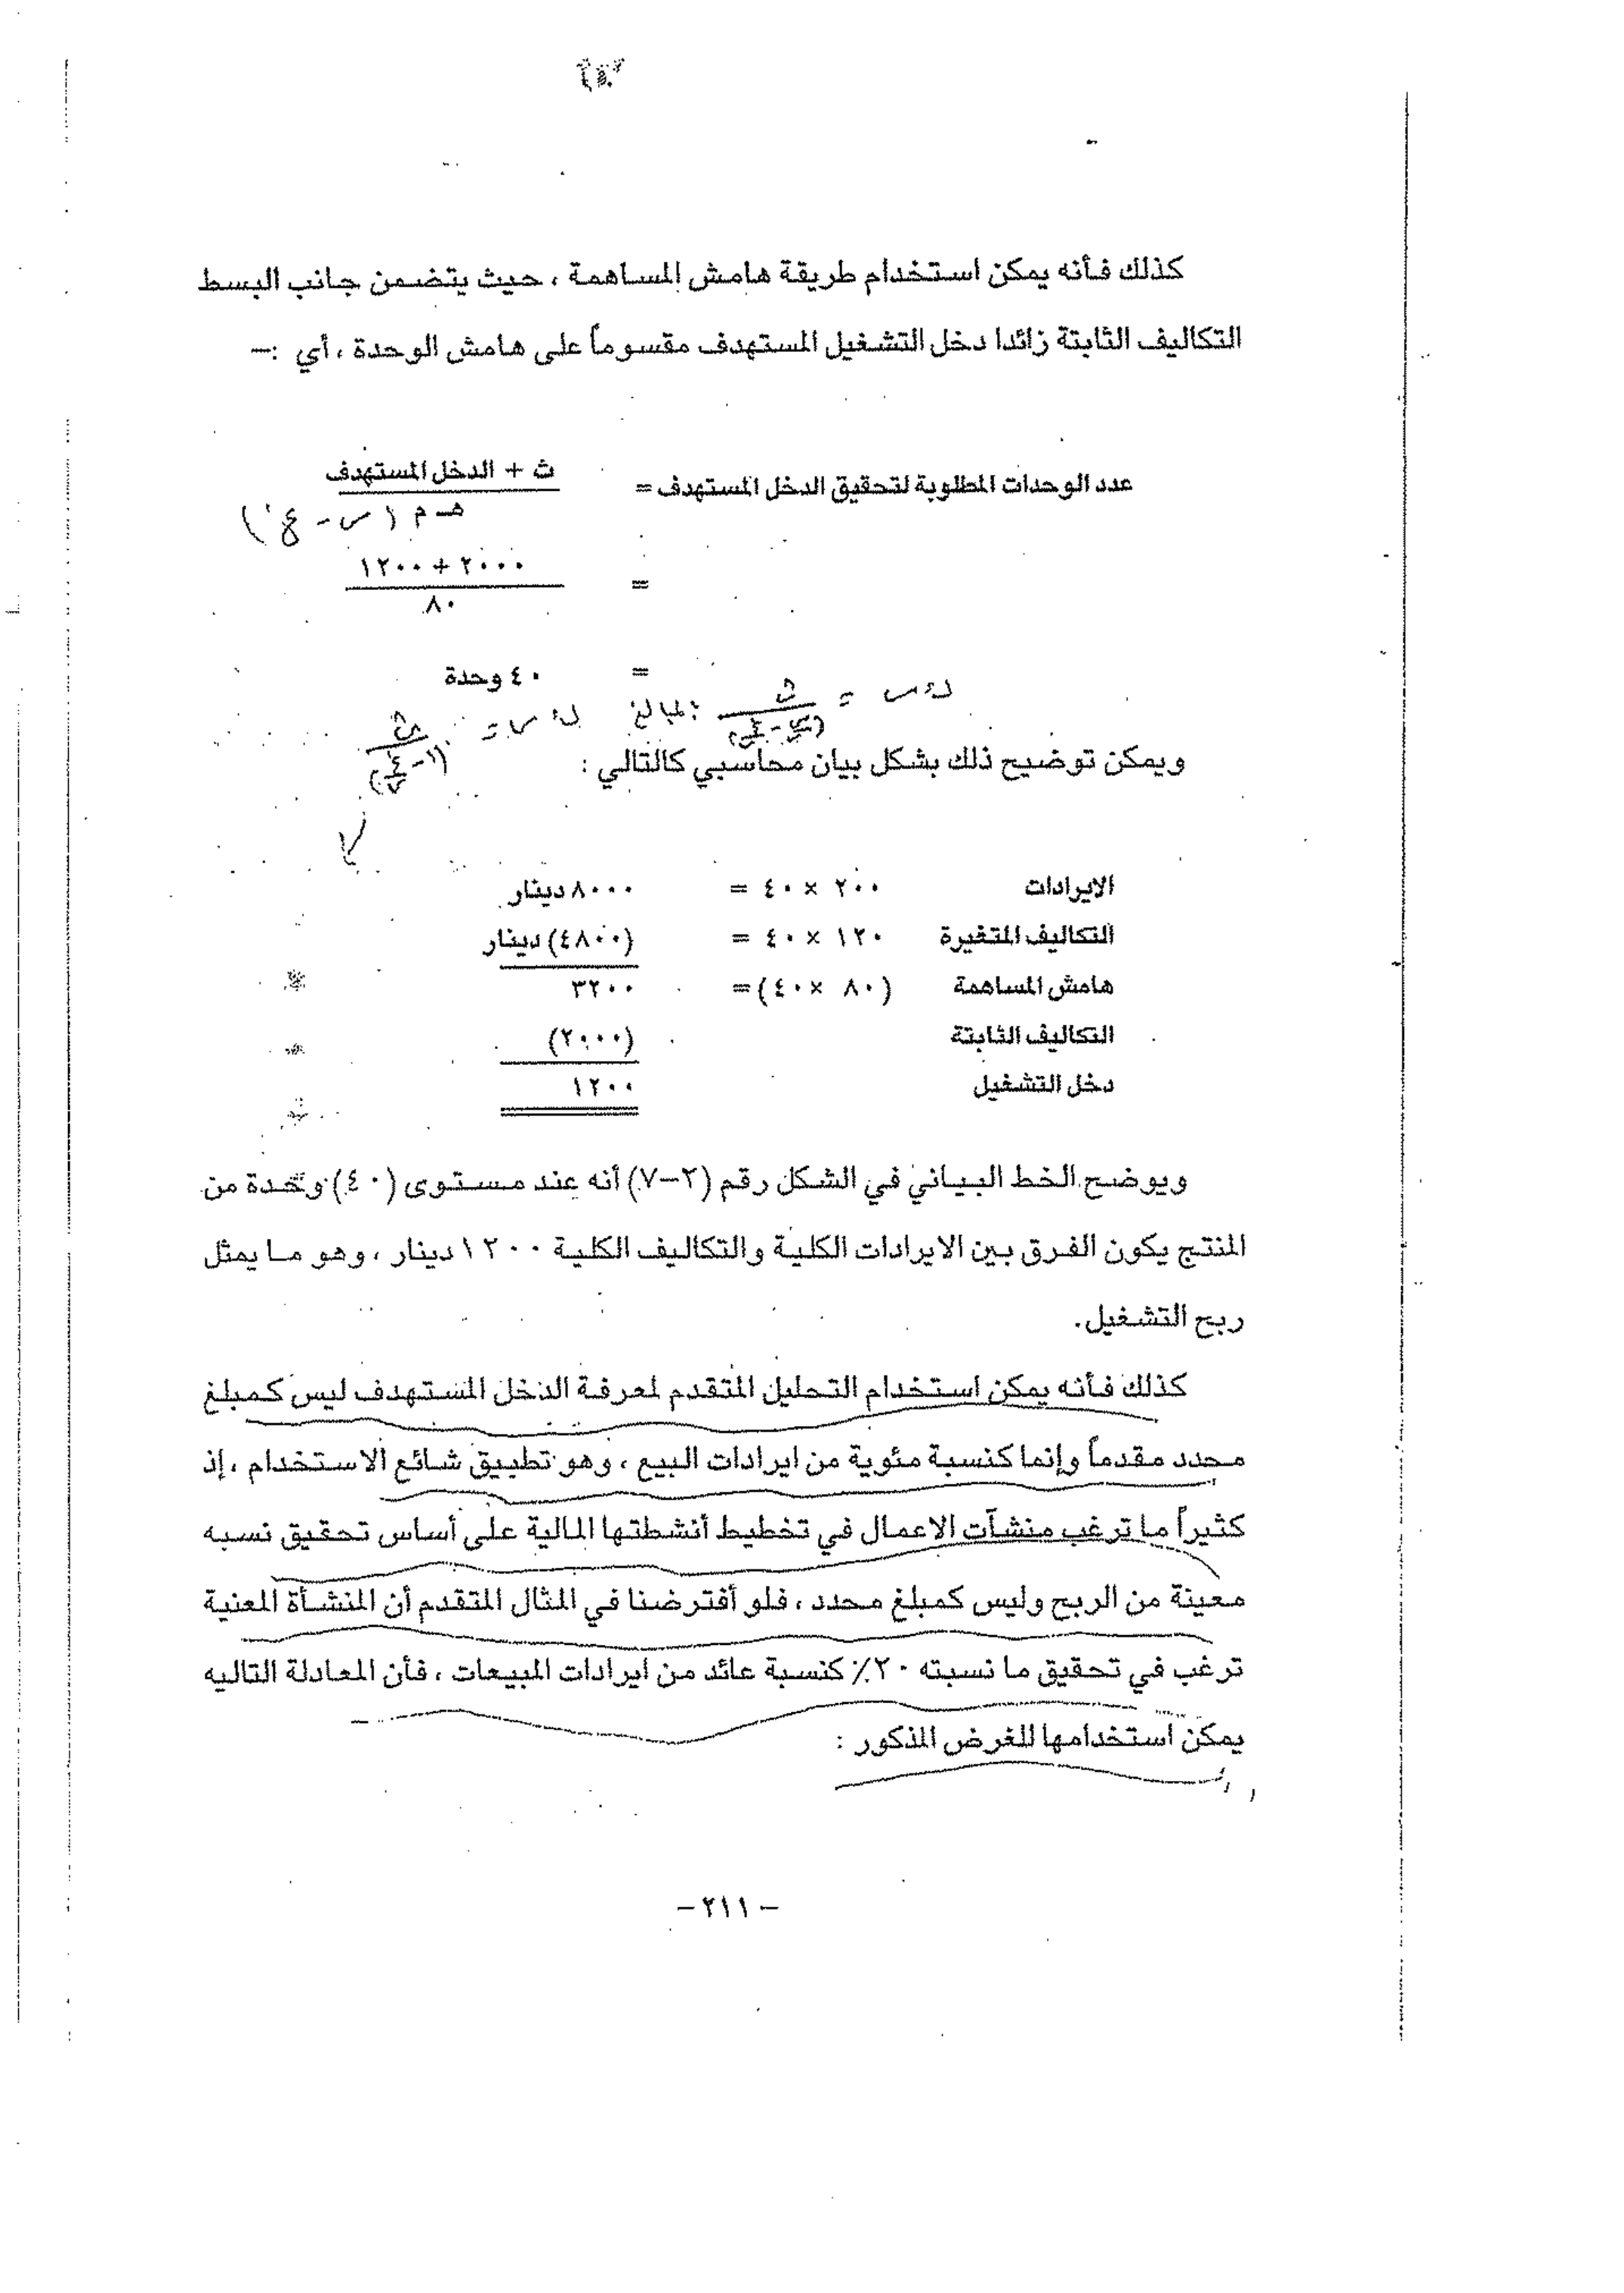 كذلك فأنه يمكن استخدام طريقة هامش المساهمة ، حيث يتضمن جانب البسط
التكاليف الثابتة زائدا دخل التشغيل المستهدف مقسوماً على هامش الوحدة ، أي :–
عدد الوحدات المطلوبة لتحقيق الدخل المستهدف = ث + الدخل المستهدف
هـ م (س - غ)
= ٢٠٠٠ + ١٢٠٠
٨٠
= ٤٠ وحدة
ويمكن توضيح ذلك بشكل بيان محاسبي كالتالي :
الايرادات ٢٠٠ × ٤٠ = ٨٠٠٠ دينار
التكاليف المتغيرة ١٢٠ × ٤٠ = (٤٨٠٠) دينار
هامش المساهمة (٨٠ ×٤٠)= ٣٢٠٠
التكاليف الثابتة (٢٠٠٠)
دخل التشغيل ١٢٠٠
ويوضح الخط البياني في الشكل رقم (٢–٧) أنه عند مستوى (٤٠) وحدة من
المنتج يكون الفرق بين الايرادات الكلية والتكاليف الكلية ١٢٠٠ دينار ، وهو ما يمثل
ربح التشغيل.
كذلك فأنه يمكن استخدام التحليل المتقدم لمعرفة الدخل المستهدف ليس كمبلغ
محدد مقدماً وإنما كنسبة مئوية من ايرادات البيع ، وهو تطبيق شائع الاستخدام ، إذ
كثيراً ما ترغب منشآت الاعمال في تخطيط أنشطتها المالية على أساس تحقيق نسبه
معينة من الربح وليس كمبلغ محدد ، فلو أفترضنا في المثال المتقدم أن المنشأة المعنية
ترغب في تحقيق ما نسبته ٢٠٪ كنسبة عائد من ايرادات المبيعات ، فأن المعادلة التاليه
يمكن استخدامها للغرض المذكور :
– ٢١١ –